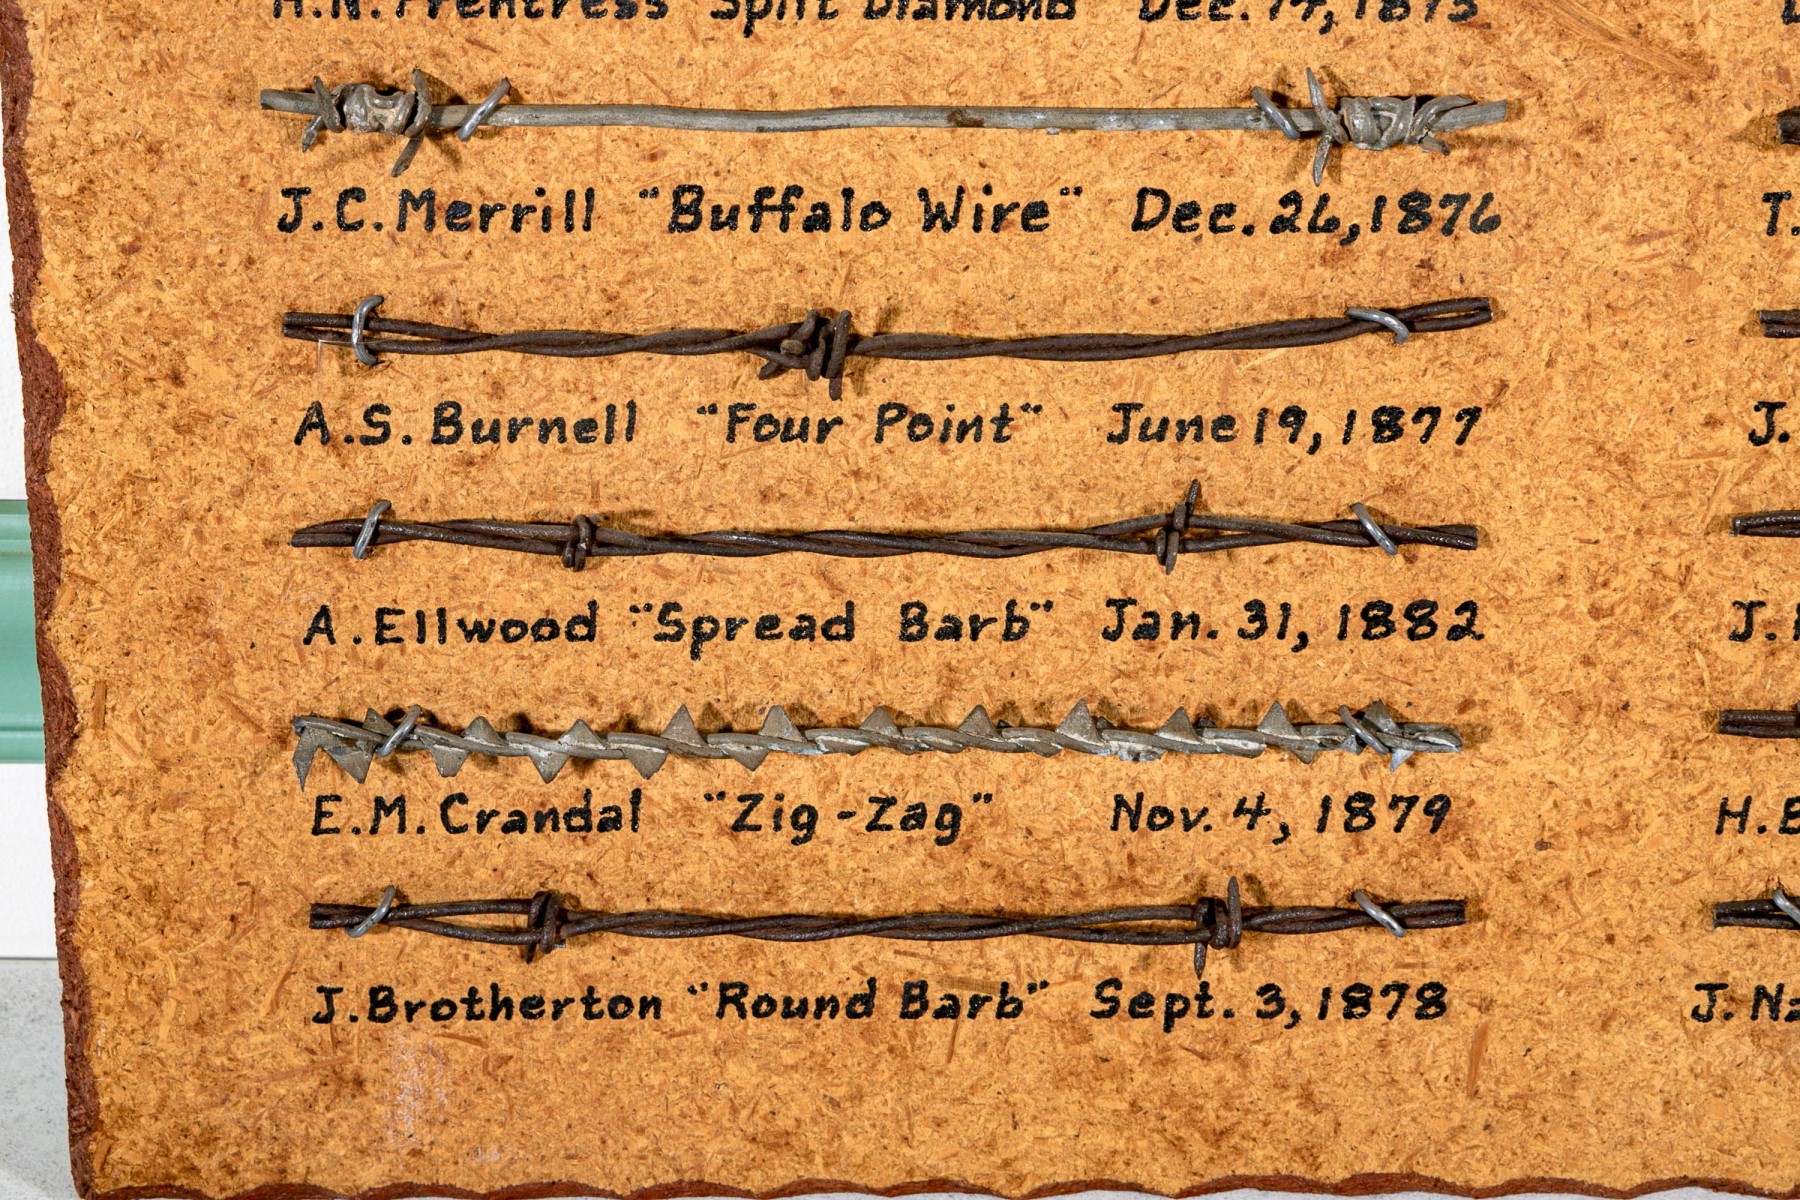 H.N. Frentress "Split Diamond" Dec. 14, 1875
J.C. Merrill "Buffalo Wire" Dec. 26, 1876
T.
A.S. Burnell "Four Point" June 19, 1877
J.
A. Ellwood "Spread Barb" Jan. 31, 1882
J.
E.M. Crandal "Zig-Zag" Nov. 4, 1879
H.
J. Brotherton "Round Barb" Sept. 3, 1878
J. Na